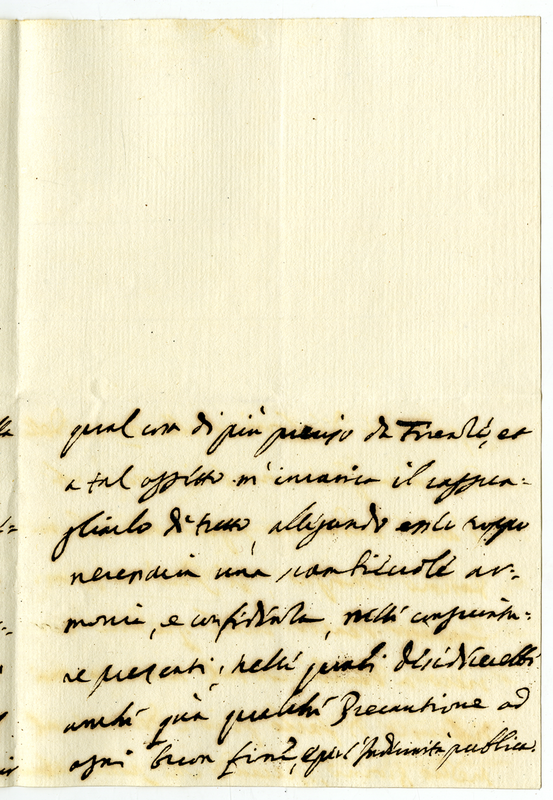 qual cosa di più preciso da Trieste, et
a tal effetto m' incarica il raggua-
gliarlo di tutto, allegando esser troppo
necessaria una scambievole ar-
monia, e confidenza, nelle congiuntu-
re presenti, nelle quali desidererebbe
anche quà qualche Precautione ad
ogni buon fine, e per l'Indennità publica.